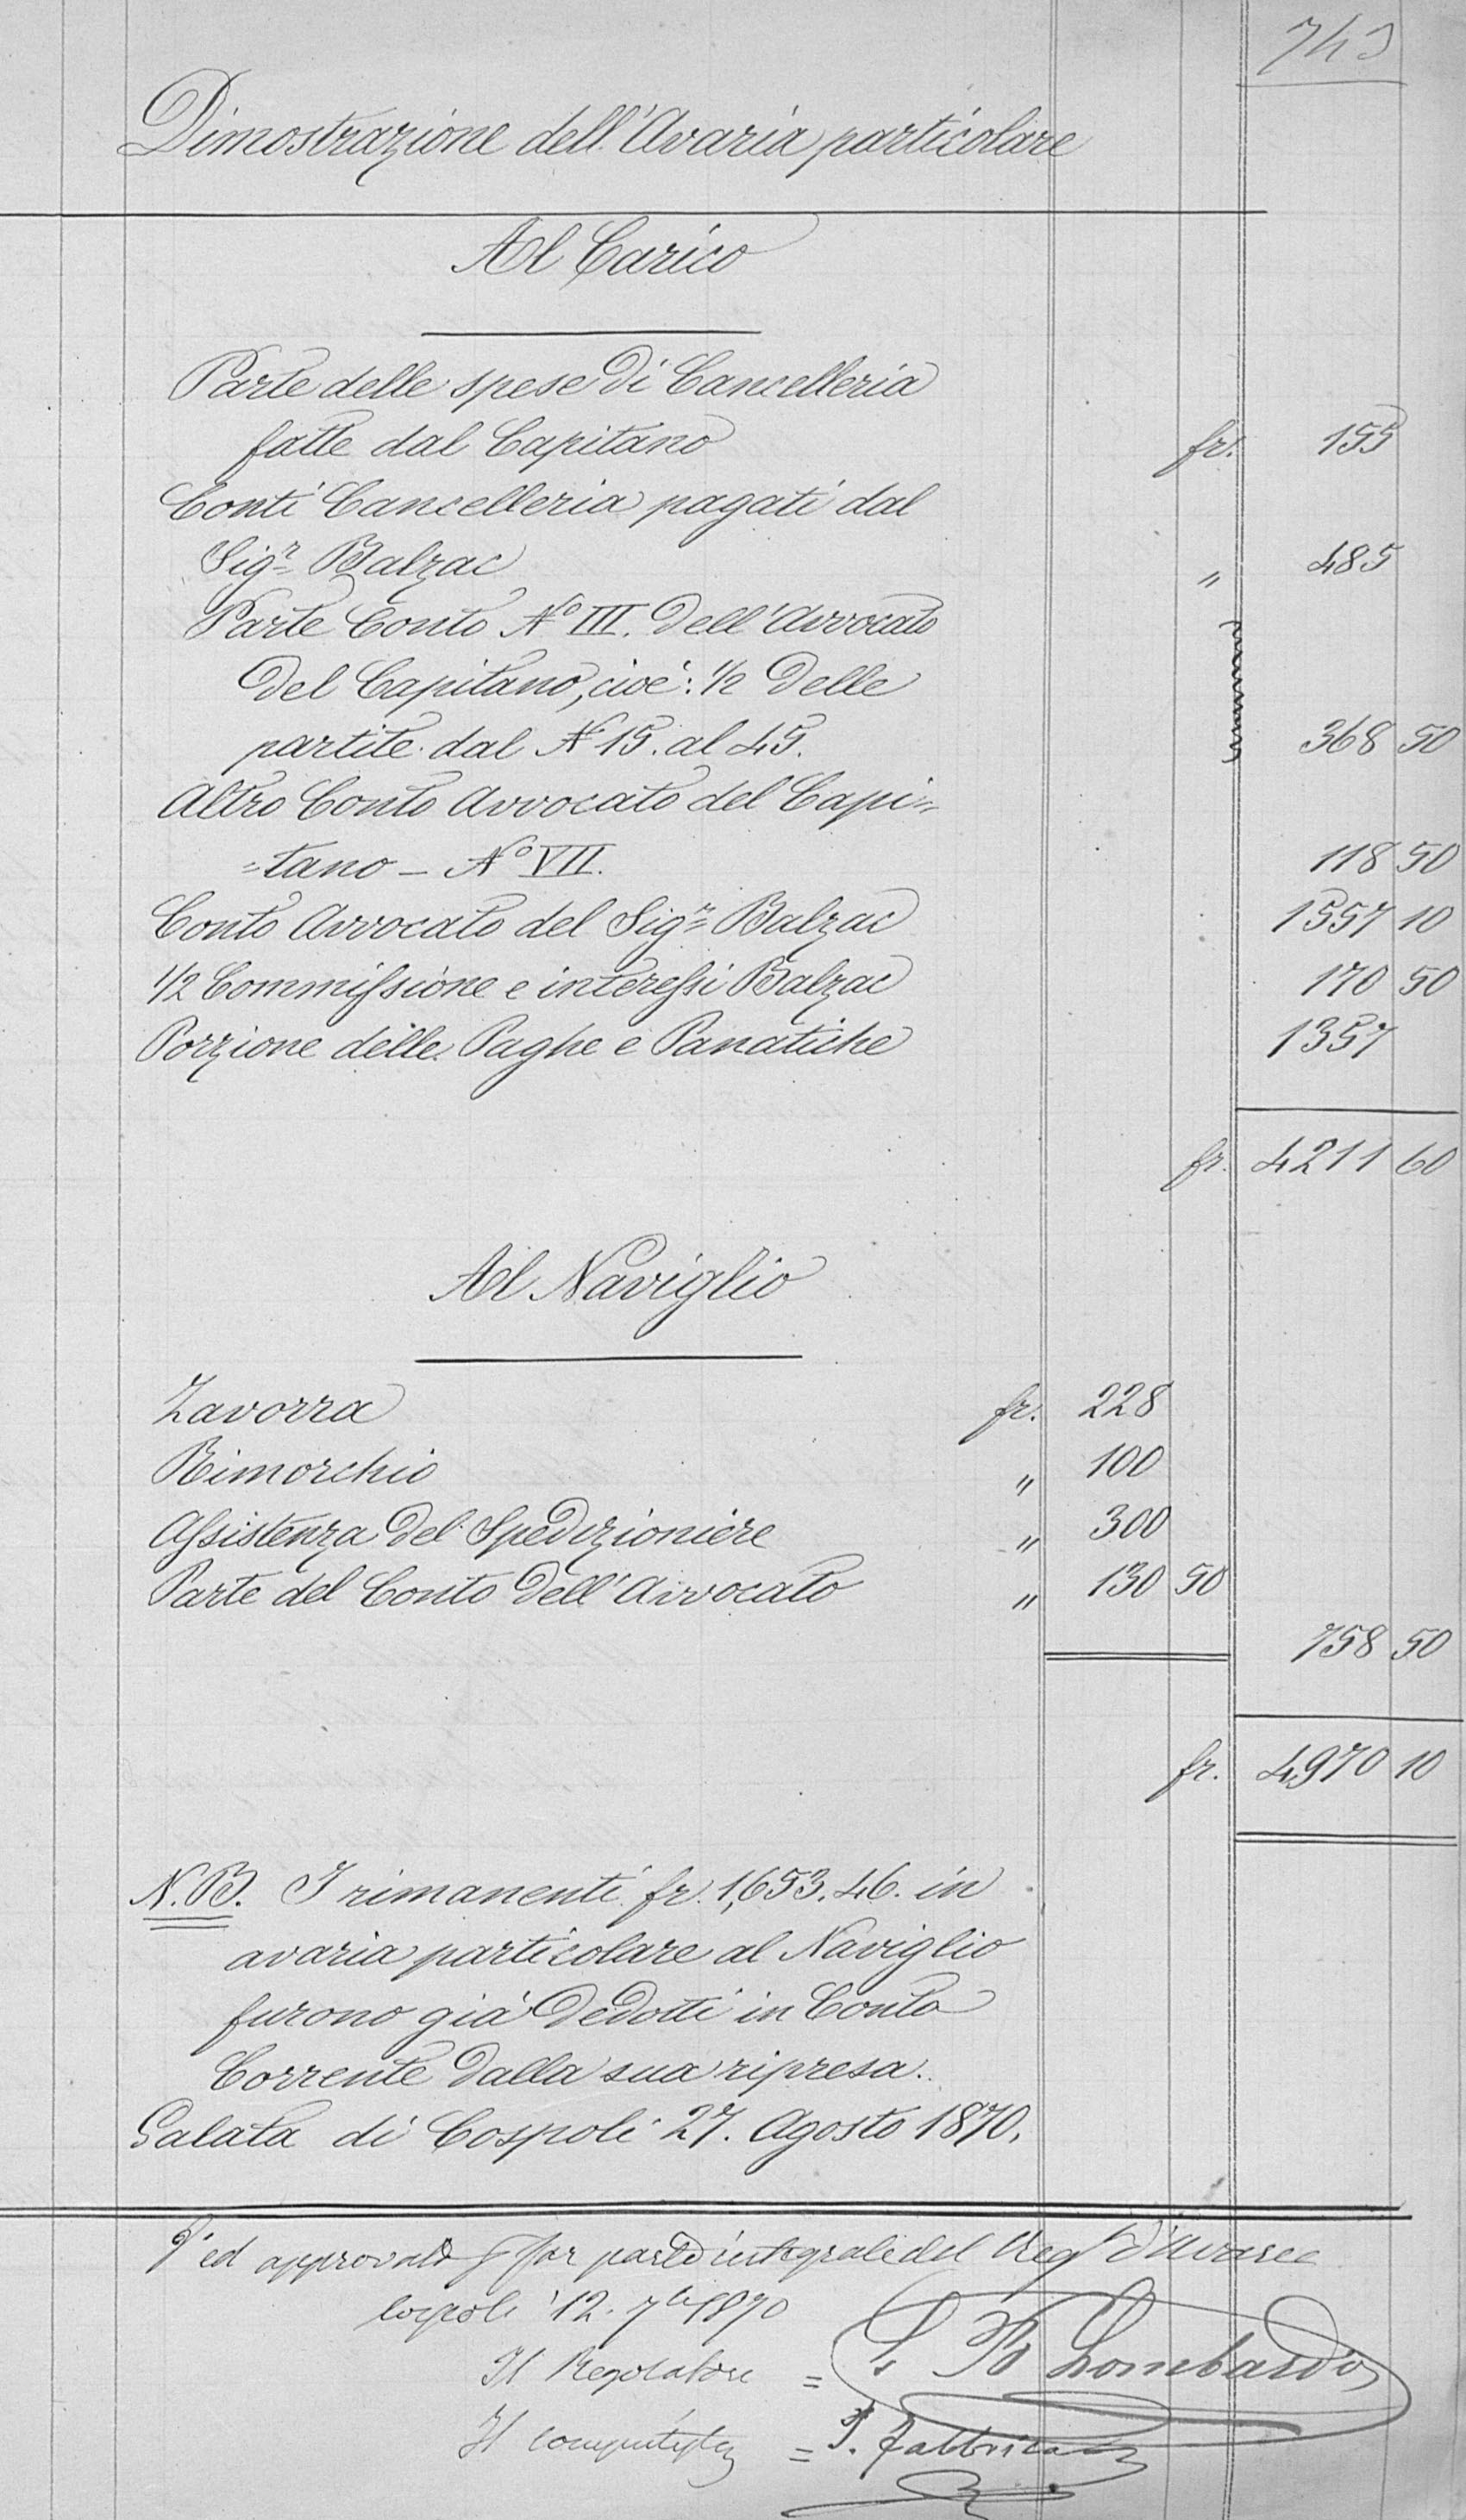 743
Dimostrazione dell'Avaria particolare
Al Carico
Parte delle spese di Cancelleria
fatte dal Capitano fr. 155
Conti Cancelleria pagati dal
Sigr Balzac " 485
Parte Conto No III. dell'Avvocato
del Capitano, cioè: 1/2 delle
partite dal N 15. al 45. 368 50
Altro Conto Avvocato del Capi=
=tano - No VII. 118 50
Conto Avvocato del Sigr Balzac 1557 10
1/2 Commissione e interessi Balzac 170 50
Porzione delle Paghe e Panatiche 1357
fr. 4211 60
Al Naviglio
Zavorra fr. 228
Rimorchio " 100
Assistenza del Spedizioniere " 300
Parte del Conto dell'Avvocato " 130 50
758 50
fr. 4970 10
N.B. I rimanenti fr. 1,653.46. in
avaria particolare al Naviglio
furono già dedotti in Conto
Corrente dalla sua ripresa.
Galata di Cospoli 27. Agosto 1870.
ed approvato far parte integrale del Regto d'Avaree
Cospoli 12. 7bre 1870
Il Regolatore = B Lombardo
Il = Fabbri